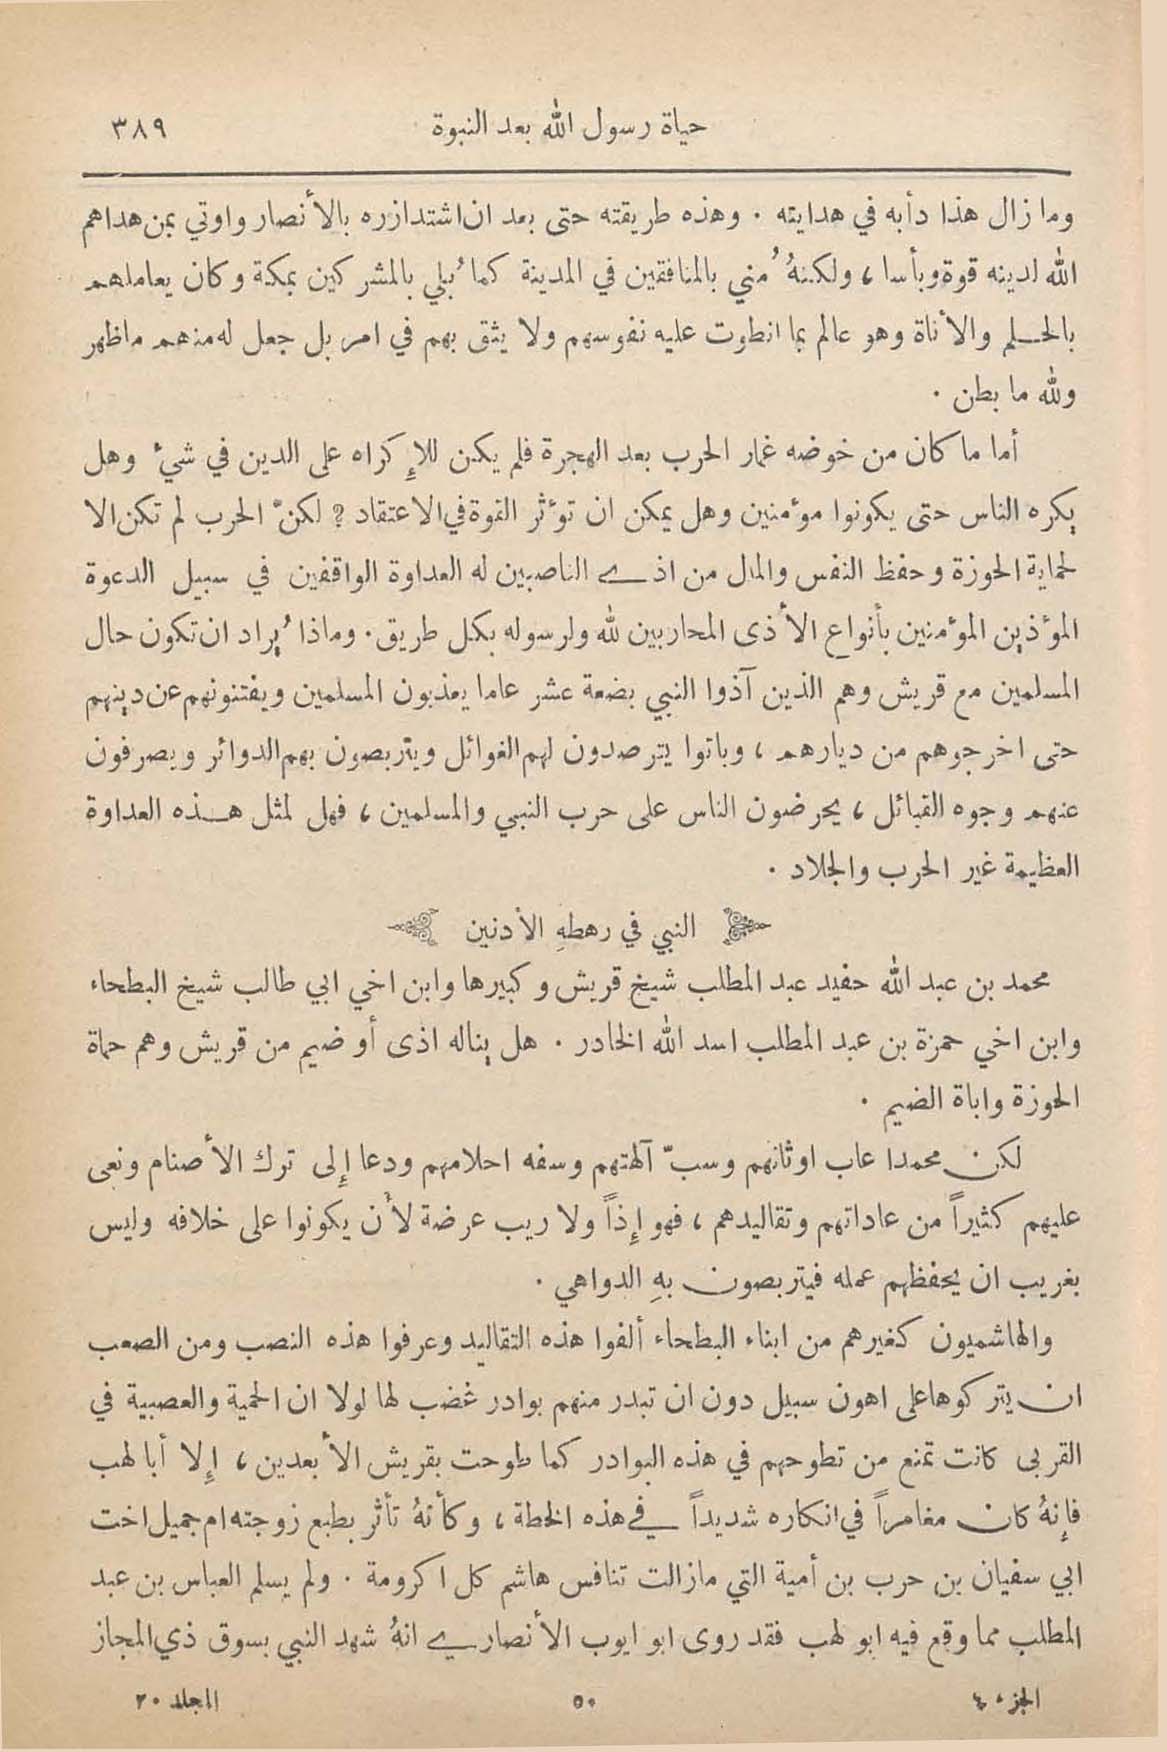 حياة رسول الله بعد النبوة ٣٨٩
وما زال هذا دأبه في هدايته . وهذه طريقته حتى بعد ان اشتد ازره بالأنصار واوتي بمن هداهم
الله لدينه قوة وبأسا ، ولكنهُ مُني بالمنافقين في المدينة كما بُلي بالمشركين بمكة وكان يعاملهم
بالحلم والأناة وهو عالم بما انطوت عليه نفوسهم ولا يثق بهم في امر بل جعل له منهم ما ظهر
ولله ما بطن .
أما ما كان من خوضه غمار الحرب بعد الهجرة فلم يكن للإكراه على الدين في شيء وهل
يكره الناس حتى يكونوا مؤمنين وهل يمكن ان تؤثر القوة في الاعتقاد ? لكنّ الحرب لم تكن الا
لحماية الحوزة وحفظ النفس والمال من اذى الناصبين له العداوة الواقفين في سبيل الدعوة
المؤذين المؤمنين بأنواع الأذى المحاربين لله ولرسوله بكل طريق . وماذا يُراد ان تكون حال
المسلمين مع قريش وهم الذين آذوا النبي بضعة عشر عاما يعذبون المسلمين ويفتنونهم عن دينهم
حتى اخرجوهم من ديارهم ، وباتوا يترصدون لهم الغوائل ويتربصون بهم الدوائر ويصرفون
عنهم وجوه القبائل ، يحرضون الناس على حرب النبي والمسلمين ، فهل لمثل هذه العداوة
العظيمة غير الحرب والجلاد .
النبي في رهطهِ الأدنين
محمد بن عبد الله حفيد عبد المطلب شيخ قريش وكبيرها وابن اخي ابي طالب شيخ البطحاء
وابن اخي حمزة بن عبد المطلب اسد الله الخادر . هل يناله اذى أو ضيم من قريش وهم حماة
الحوزة واباة الضيم .
لكن محمدا عاب اوثانهم وسبّ آلهتهم وسفه احلامهم ودعا إلى ترك الأصنام ونعى
عليهم كثيراً من عاداتهم وتقاليدهم ، فهو إذاً ولا ريب عرضة لأن يكونوا على خلافه وليس
بغريب ان يحفظهم عمله فيتربصون بهِ الدواهي .
والهاشميون كغيرهم من ابناء البطحاء ألفوا هذه التقاليد وعرفوا هذه النصب ومن الصعب
ان يتركوها على اهون سبيل دون ان تبدر منهم بوادر غضب لها لولا ان الحمية والعصبية في
القربى كانت تمنع من تطوحهم في هذه البوادر كما طوحت بقريش الأبعدين ، إلا أبا لهب
فإنهُ كان مغامراً في انكاره شديداً في هذه الخطة ، وكأنهُ تأثر بطبع زوجته ام جميل اخت
ابي سفيان بن حرب بن أمية التي مازالت تنافس هاشم كل اكرومة . ولم يسلم العباس بن عبد
المطلب مما وقع فيه ابو لهب فقد روى ابو ايوب الأنصاري انهُ شهد النبي بسوق ذي المجاز
الجزء ٤ ٥٠ المجلد ٢٠